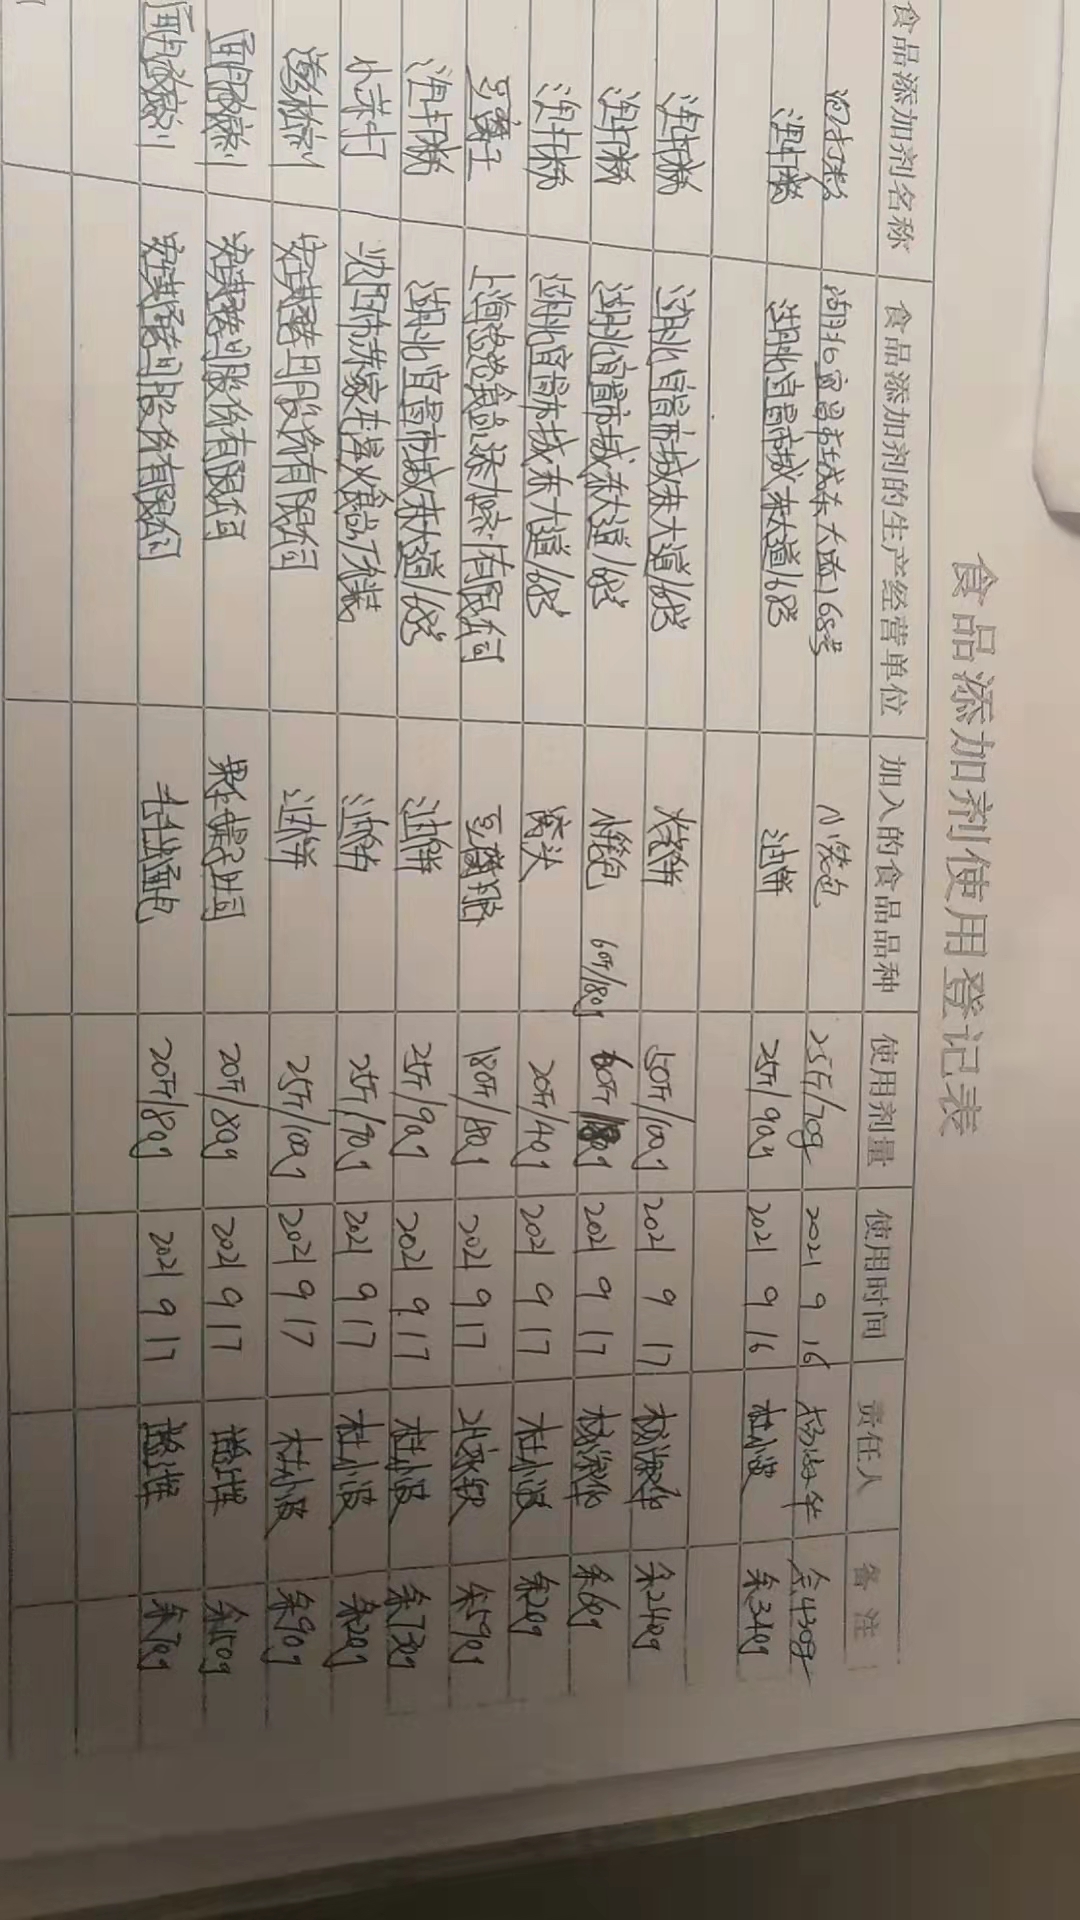 食品添加剂使用登记表
食品添加剂名称 食品添加剂的生产经营单位 加入的食品品种 使用剂量 使用时间 责任人 备注
泡打粉 湖北宜昌市城东大道168号 小笼包 25斤/70g 2021 9 16 杨海华 余430g
泡打粉 湖北宜昌市城东大道168号 油饼 25斤/90g 2021 9 16 杜小波 余340g
泡打粉 湖北宜昌市城东大道168号 烧饼 50斤/100g 2021 9 17 杨海华 余240g
泡打粉 湖北宜昌市城东大道168号 小笼包 60斤/180g 60斤/180g 2021 9 17 杨海华 余60g
泡打粉 湖北宜昌市城东大道168号 窝头 20斤/40g 2021 9 17 杜小波 余20g
豆腐王 上海悠悠食品添加剂有限公司 豆腐脑 180斤/180g 2021 9 17 余590g
泡打粉 湖北宜昌市城东大道168号 油饼 25斤/90g 2021 9.17 杜小波 余730g
小苏打 沈阳市苏家屯 食品 油饼 25斤/70g 2021 9 17 杜小波 余20g
蓬松剂 安琪酵母股份有限公司 油饼 25斤/100g 2021 9 17 杜小波 余90g
面用改良剂 安琪酵母股份有限公司 20斤/80g 2021 9 17 余150g
面用改良剂 安琪酵母股份有限公司 吐司面包 20斤/80g 2021 9 17 余70g